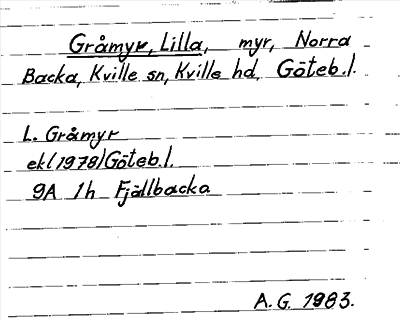 Gråmyr, Lilla, myr, Norra
Backa, Kville sn, Kville hd. Göteb.l.
L. Gråmyr
ekl(1978)Göteb.l.
9A 1h Fjällbacka
A.G. 1983.